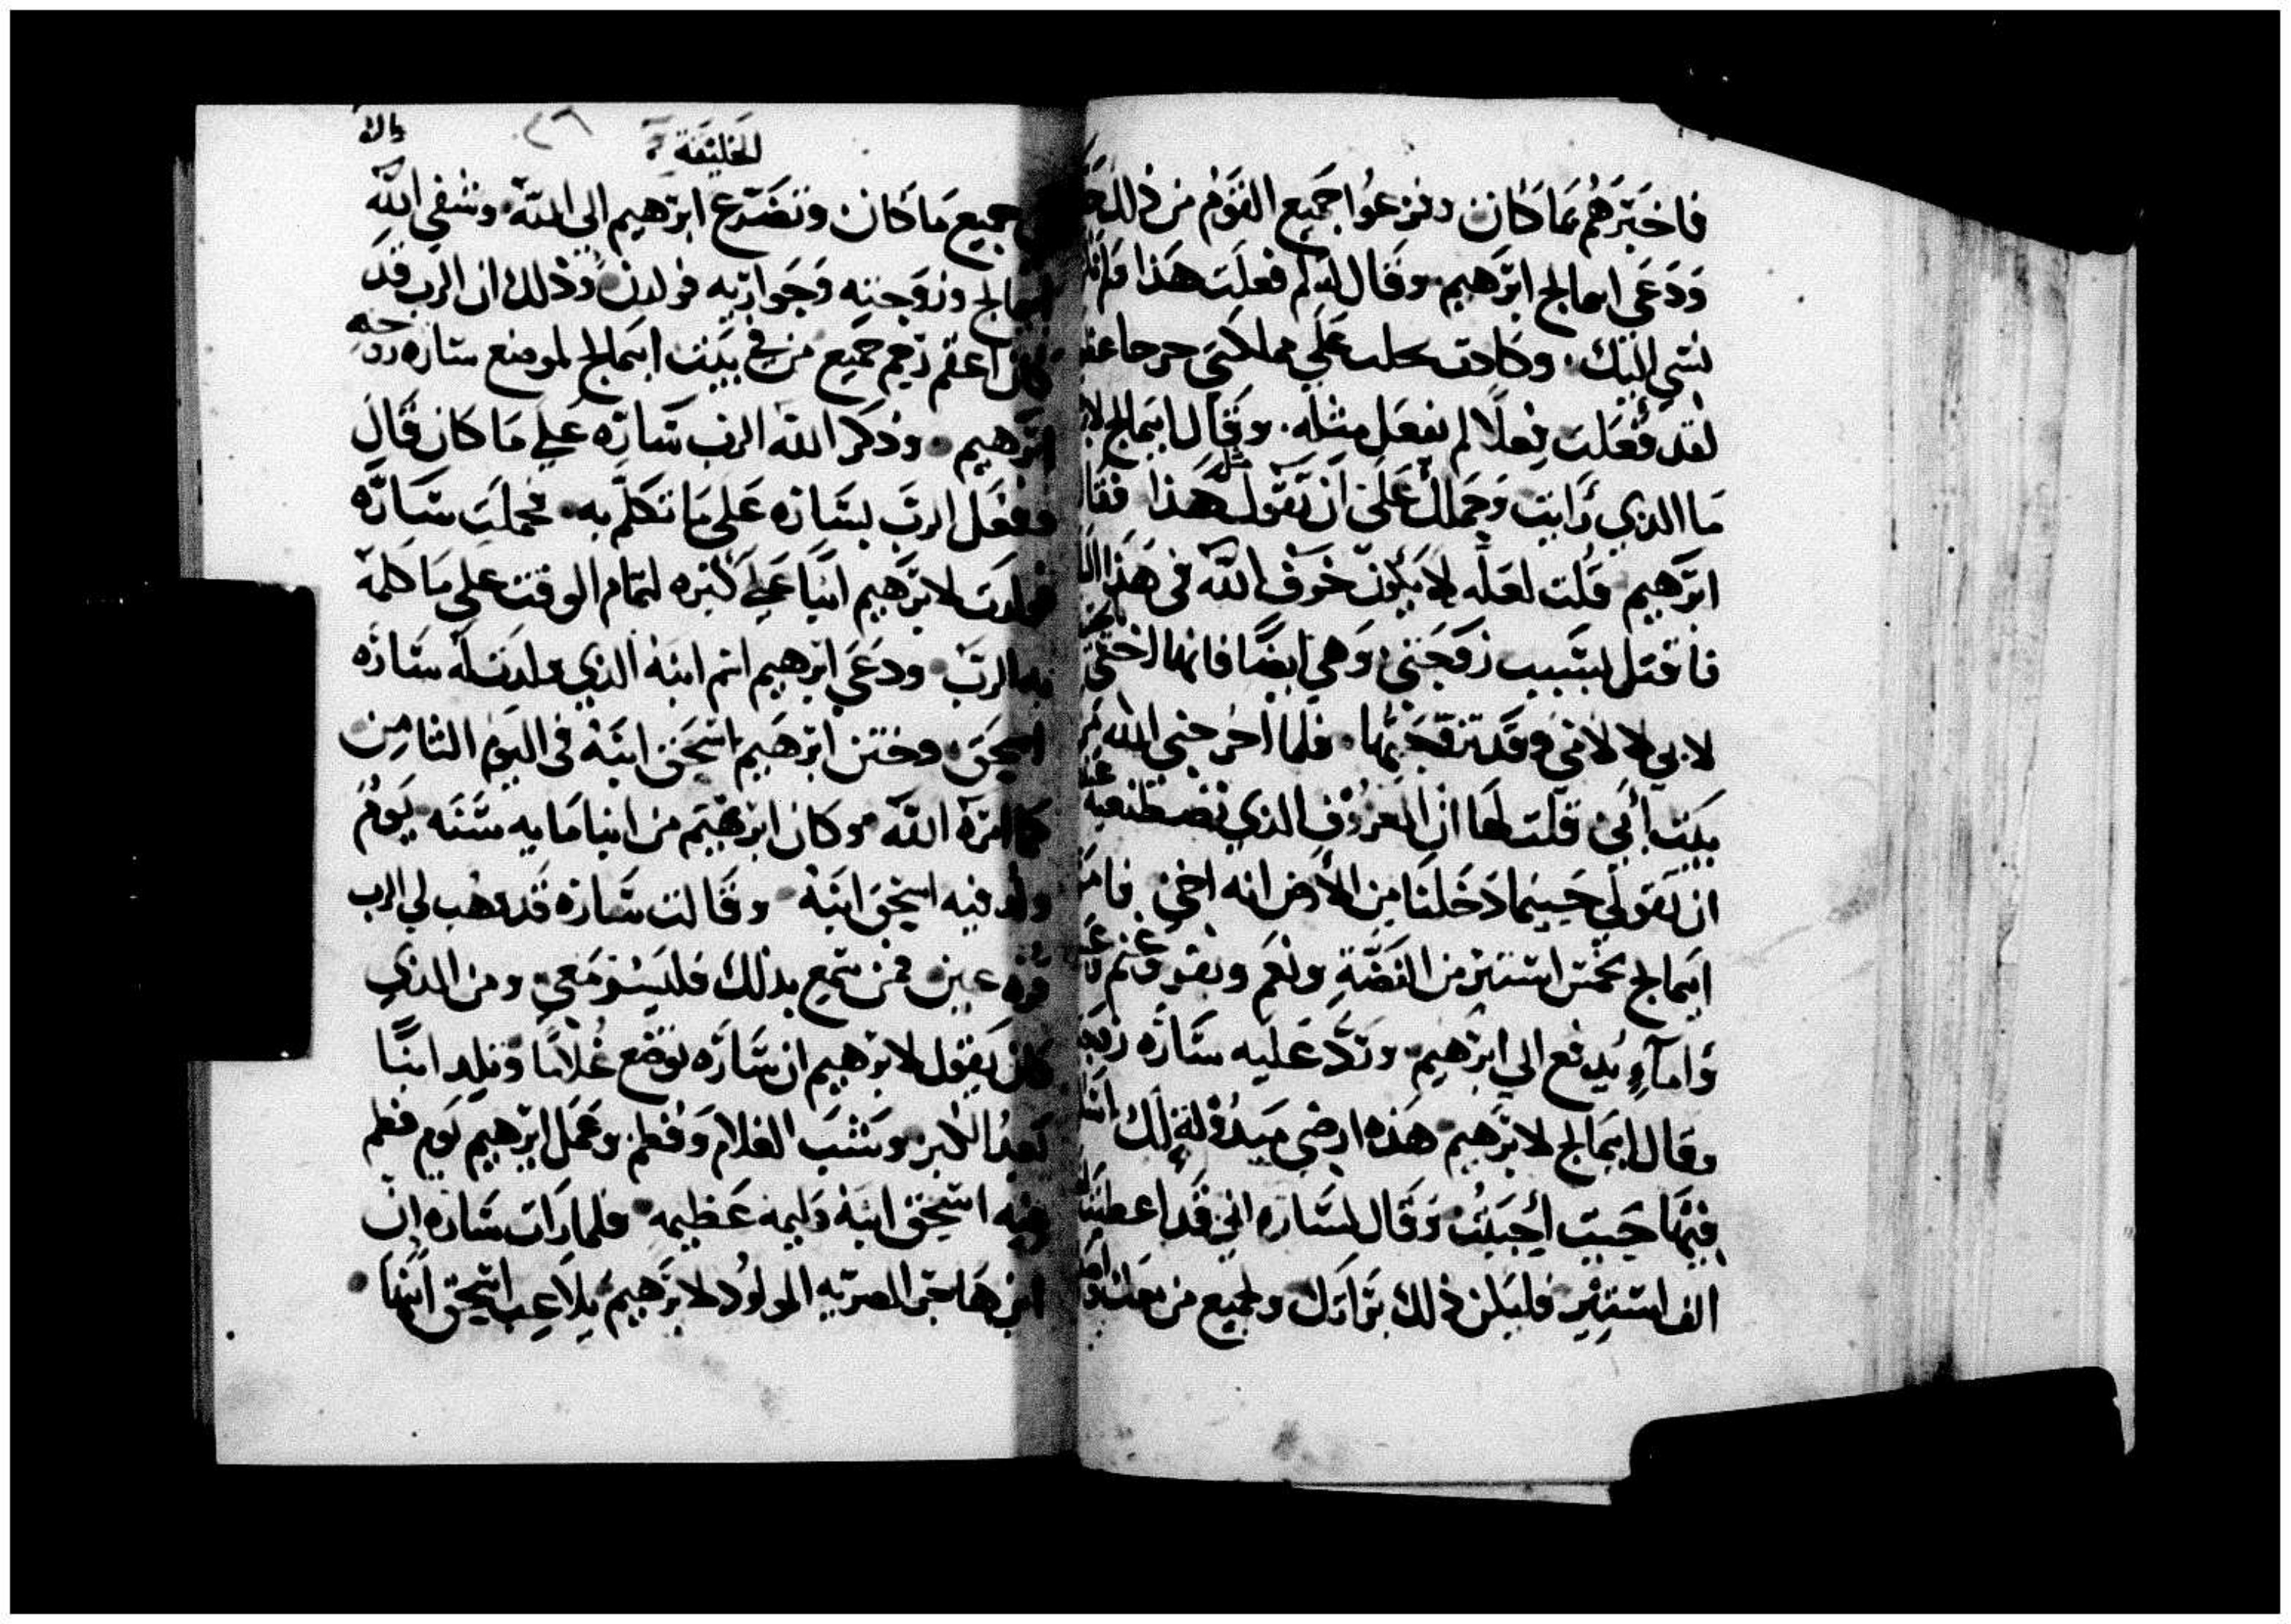 فاخبرهم بما كان وفزعوا جميع القوم من ذلك
ودعي ابيمالخ ابرهيم وقال له لم فعلت هذا
نسي اليك وكادت تحلب علي مملكتي حرحا
لقد فعلت فعلا لم يفعل مثله وقال ابيمالخ
ما الذي رايت وحملك على ان تقول هذا فقا
ابرهيم قلت لعله لا يكون خوف الله في هذا
فاقتل بسبب زوجتي وهي ايضا فانها اختي
لابي لا لامي وقد تزوجتها فلما اخرجني الله
بيت ابي قلت لها ان المعروف الذي تصطنعيه
ان تقولي حيثما دخلنا من الارض انه اخي
ابيمالخ استنير من الفضة وغنم وبقر
واماء يدفع الي ابرهيم ورد عليه ساره
وقال ابيمالخ لابرهيم هذه ارضي مبدولة لك
حيث احببت وقال لساره اني قد اعطيت
الف استتير فليكن ذلك ولجميع من معك
الخليقة
٢٦
جميع ما كان وتضرع ابرهيم الي الله وشفي الله
ابيمالخ وزوجته وجواريه فولدن وذلك ان الرب قد
كان اعقم رحم جميع من في بيت ابيمالخ لموضع ساره زوجه
ابرهيم وذكر الله الرب ساره علي ما كان قال
وفعل الرب بساره على ما تكلم به فحملت ساره
فولدت لابرهيم ابنا علي كبره لتمام الوقت علي ما كلمه
به الرب ودعي ابرهيم اسم ابنه الذي ولدت له ساره
اسحق وختن ابرهيم اسحق ابنه في اليوم الثامن
كما امره الله وكان ابرهيم من ابنا مايه سنه يوم
ولد فيه اسحق ابنه وقالت ساره قد وهب لي الرب
قره عين فمن سمع بذلك فليسر معي ومن الذي
كان يقول لابرهيم ان ساره توضع غلاما وتلد ابنا
بعد الكبر وشب الغلام وفطم وعمل ابرهيم يوم فطم
فيه اسحق ابنه وليمه عظيمه فلما رات ساره ان
ابن هاجر المصريه المولود لابرهيم يلاعب اسحق ابنها